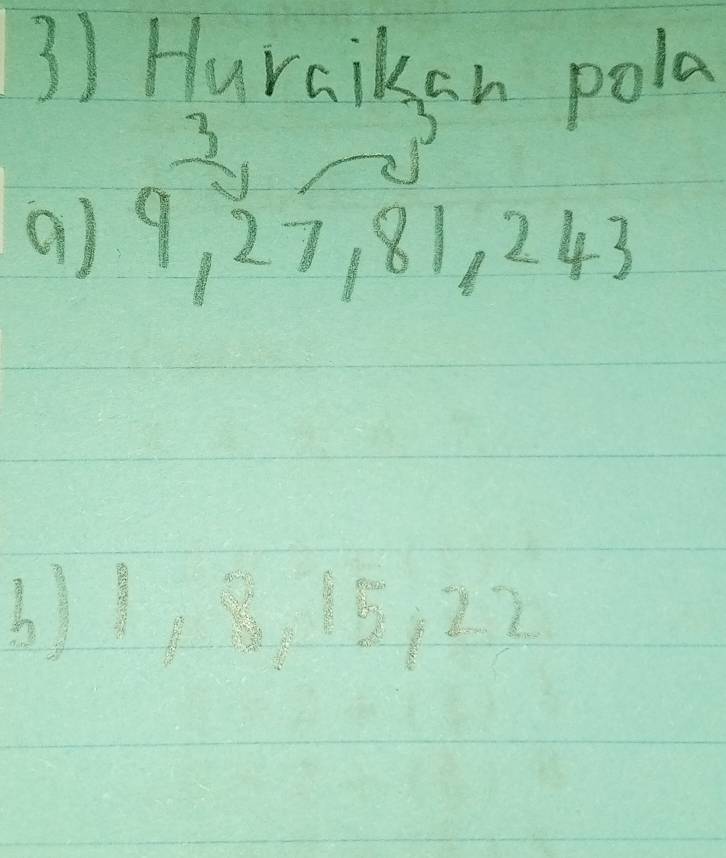 3) Huraikan pola
3 3
a) 9, 27, 81, 243
b) 1, 8, 15, 22